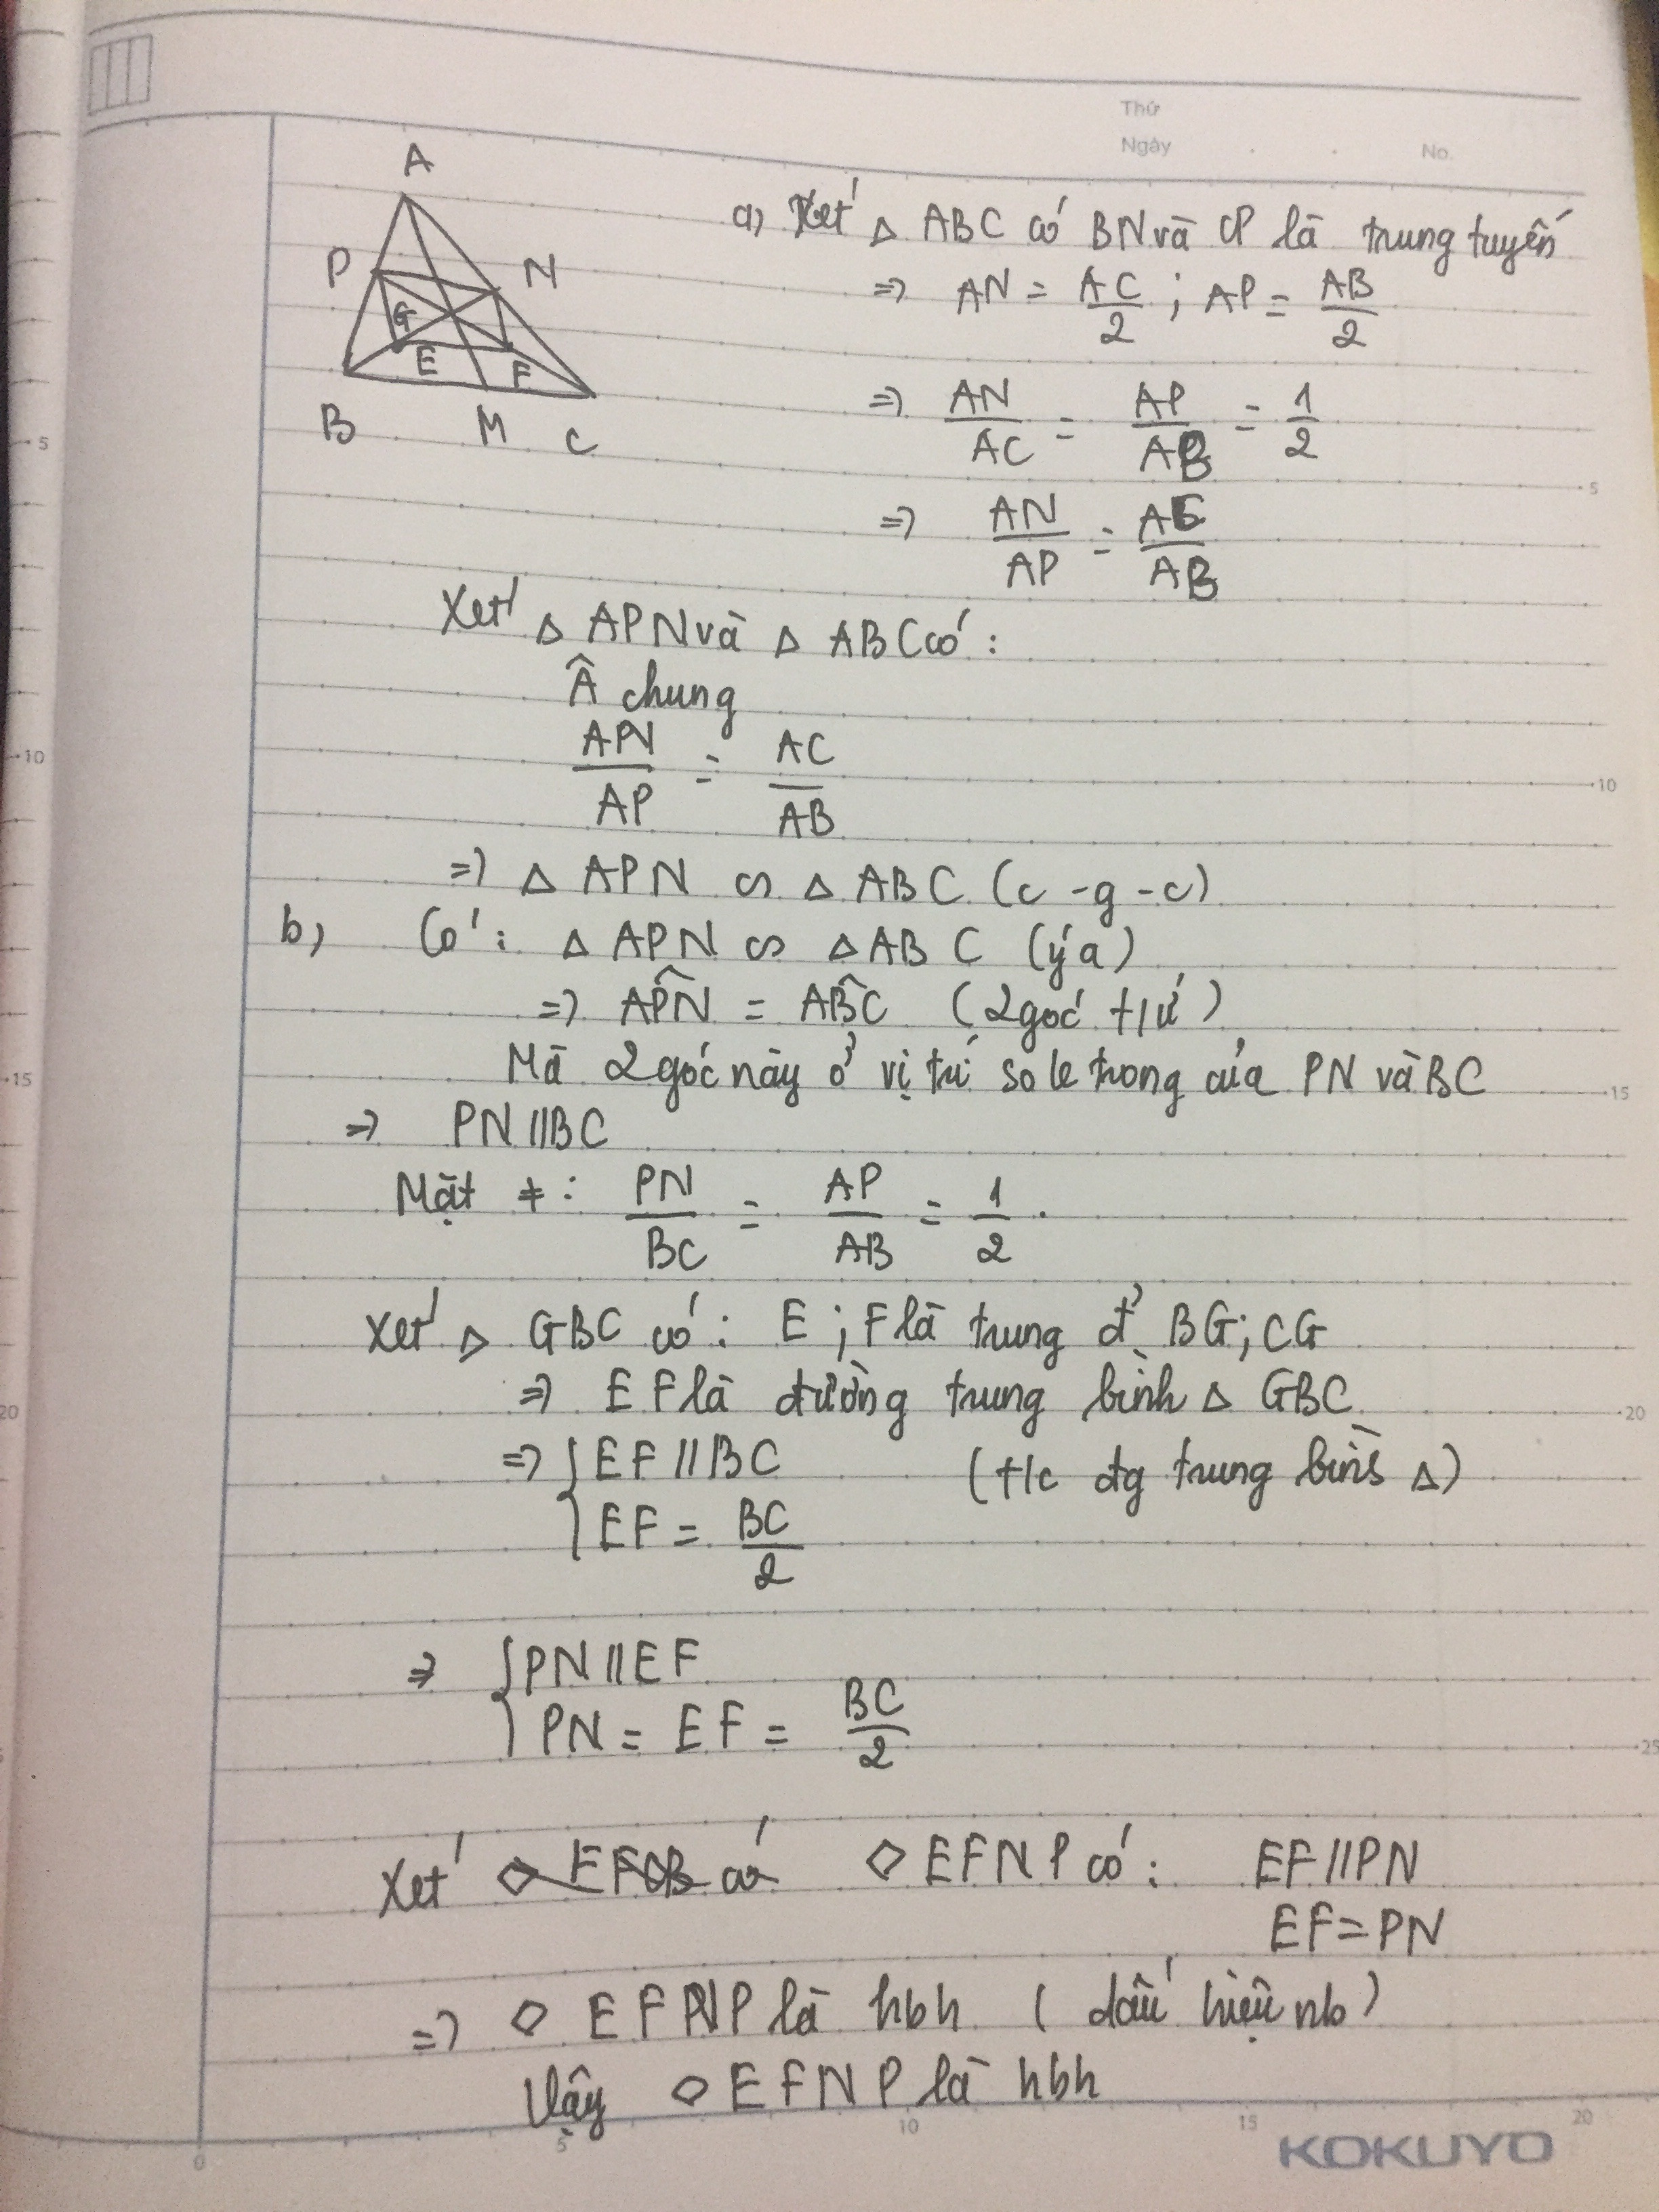 Thứ
Ngày
No.
A
P
N
G
E
F
B
M
C
a) Xét △ ABC có BN và CP là trung tuyến
=> AN = AC/2 ; AP = AB/2
=> AN/AC = AP/AB = 1/2
=> AN/AP = AC/AB
Xét △ APN và △ ABC có :
Â chung
AN/AP = AC/AB
=> △ APN ∽ △ ABC (c - g - c)
b) Có : △ APN ∽ △ ABC (ý a)
=> AP̂N = AB̂C (2 góc t/ứ)
Mà 2 góc này ở vị trí so le trong của PN và BC
=> PN // BC
Mặt ≠ : PN/BC = AP/AB = 1/2 .
Xét △ GBC có : E ; F là trung đ' BG ; CG
=> EF là đường trung bình △ GBC
=> { EF // BC (t/c đg trung bình △)
EF = BC/2
=> { PN // EF
PN = EF = BC/2
Xét ◇ EFCB có ◇ EFNP có : EF // PN
EF = PN
=> ◇ EFNP là hbh ( dấu hiệu nb )
Vậy ◇ EFNP là hbh
5
10
15
20
5
10
15
20
25
0
5
10
15
20
KOKUYO